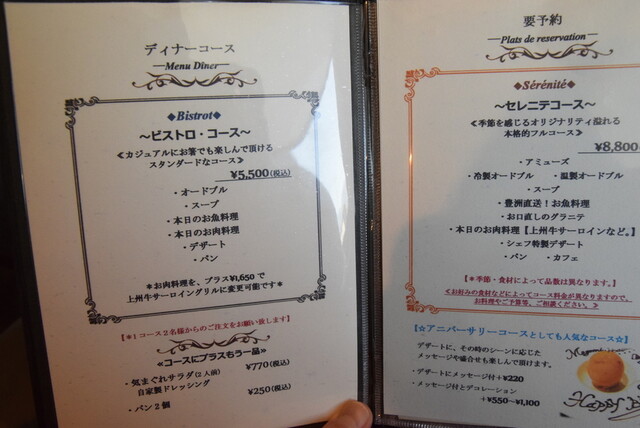 ディナーコース
—Menu Dîner—
◆Bistrot◆
～ビストロ・コース～
≪カジュアルにお箸でも楽しんで頂ける
スタンダードなコース≫
¥5,500(税込)
・オードブル
・スープ
・本日のお魚料理
・本日のお肉料理
・デザート
・パン
＊お肉料理を、プラス¥1,650で
上州牛サーロイングリルに変更可能です＊
【＊1コース2名様からのご注文をお願い致します】
≪コースにプラスもう一品≫
・気まぐれサラダ(2人前) ¥770(税込)
自家製ドレッシング
・パン2個 ¥250(税込)
要予約
—Plats de reservation—
◆Sérénité◆
～セレニテコース～
≪季節を感じるオリジナリティ溢れる
本格的フルコース≫
¥8,800
・アミューズ
・冷製オードブル ・温製オードブル
・スープ
・豊洲直送！お魚料理
・お口直しのグラニテ
・本日のお肉料理【上州牛サーロインなど。】
・シェフ特製デザート
・パン ・カフェ
【＊季節・食材によって品数は異なります。】
≪お好みの食材などによってコース料金が異なりますので、
お料理やご予算等、ご相談ください。≫
【☆アニバーサリーコースとしても人気なコース☆】
デザートに、その時のシーンに応じた
メッセージや盛合せも楽しんで頂けます。
・デザートにメッセージ+¥220
・メッセージ付とデコレーション
+¥550～¥1,100